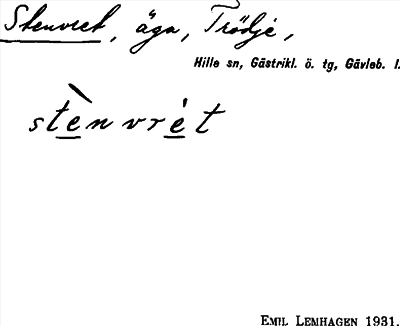 Stenvret, äga, Trödje,
Hille sn, Gästrikl. ö. tg, Gävleb. l.
stènvrét
EMIL LEMHAGEN 1931.